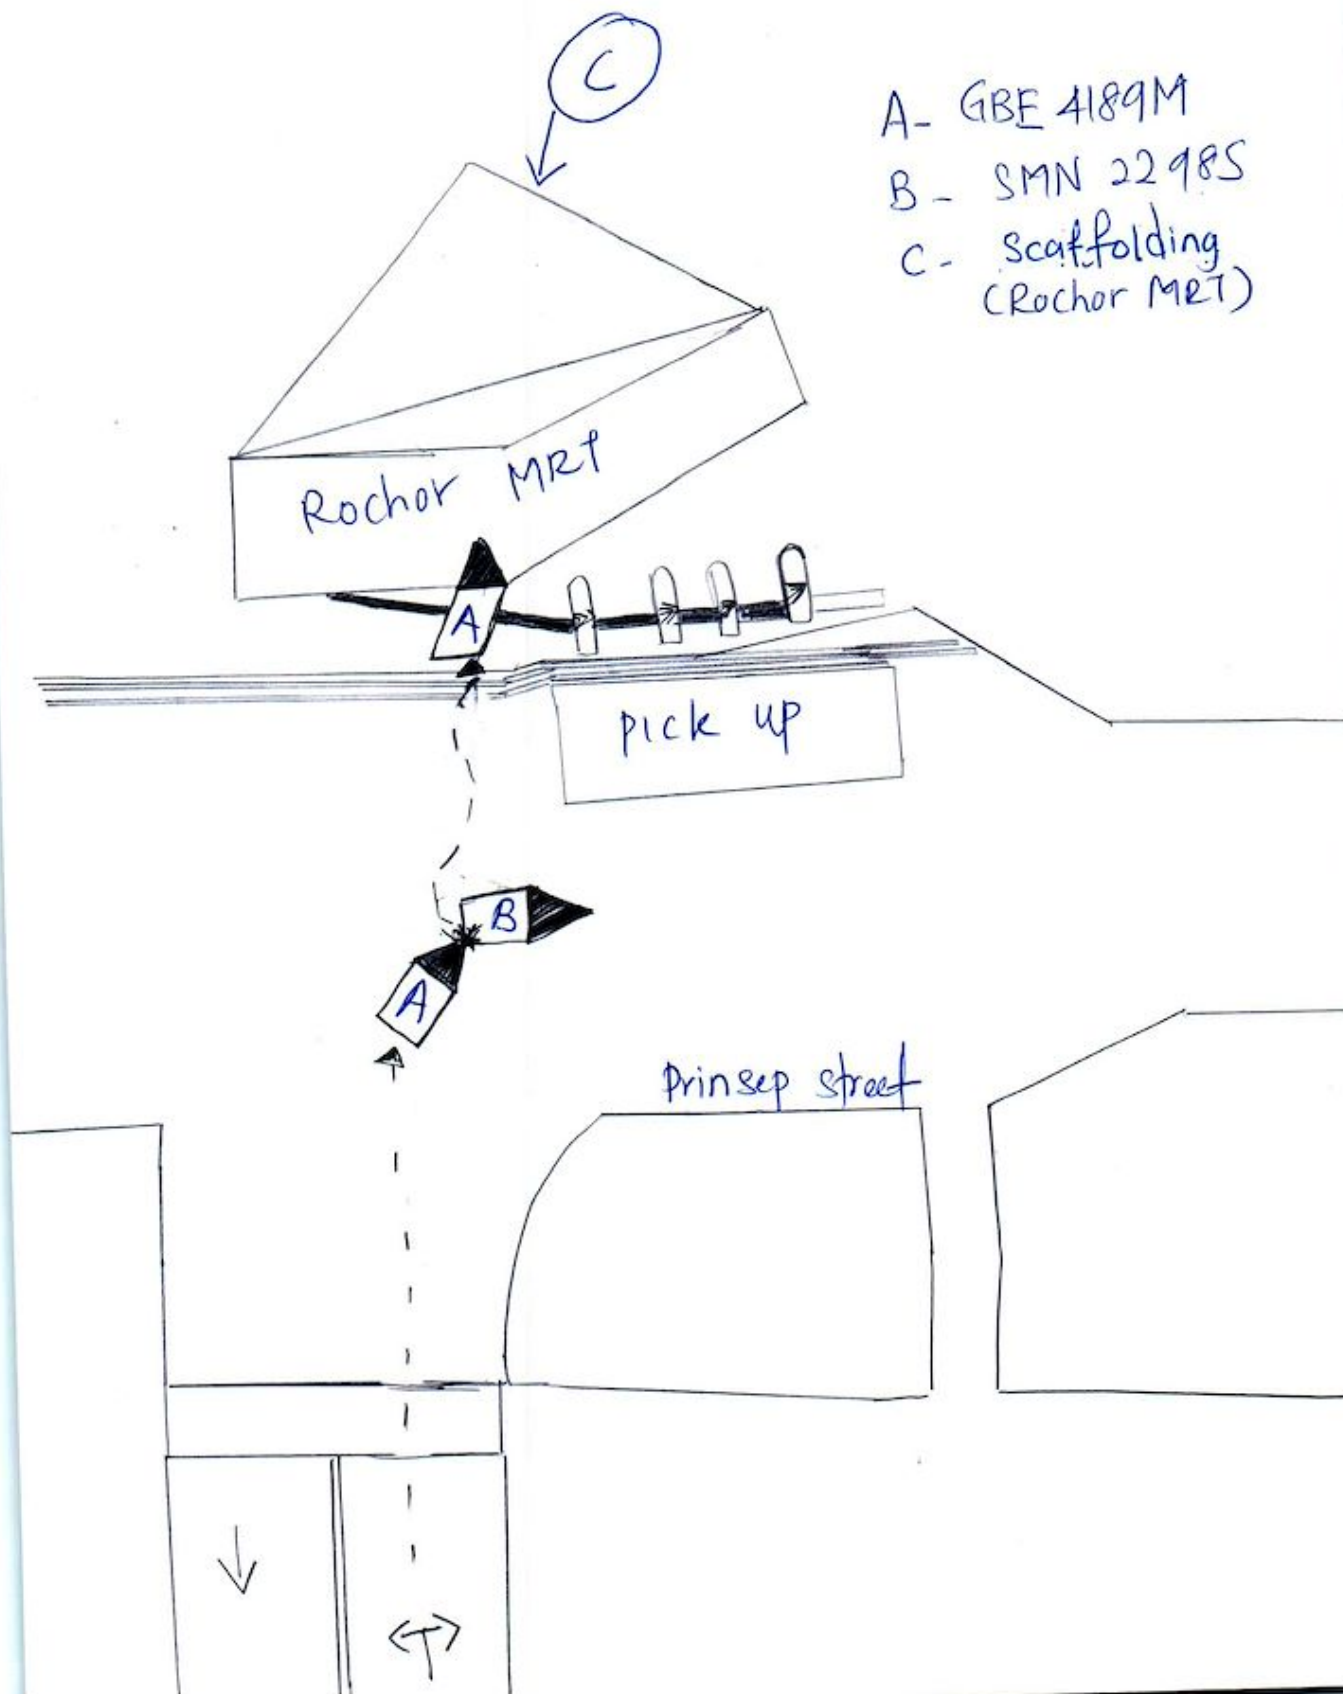 C
A - GBE 4189M
B - SMN 2298S
C - Scaffolding
(Rochor MRT)
Rochor MRT
A
pick up
B
A
Prinsep street